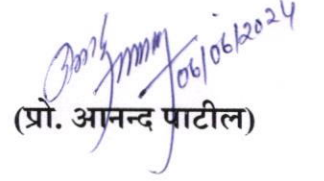 06/06/2024
(प्रो. आनन्द पाटील)